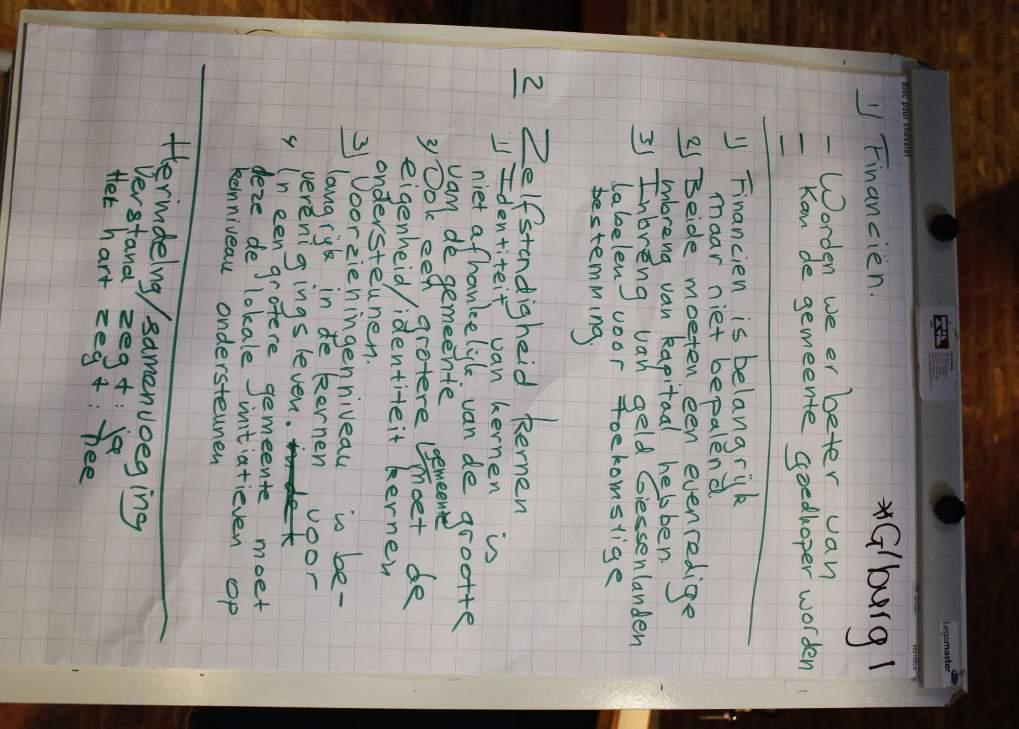 Bloc pour chevalet
Legamaster
*G/burg 1
1) Financiën.
- Worden we er beter van
- Kan de gemeente goedkoper worden
1) Financien is belangrijk
maar niet bepalend
2) Beide moeten een evenredige
inbreng van kapitaal hebben
3) Inbreng van geld Giessenlanden
labelen voor toekomstige
bestemming
2 Zelfstandigheid kernen
1) Identiteit van kernen is
niet afhankelijk van de grootte
van de gemeente
2) Ook een grotere gemeente moet de
eigenheid/identiteit kernen
ondersteunen.
3) Voorzieningenniveau is be-
langrijk in de kernen voor
verenigingsleven.
4 In een grotere gemeente moet
deze de lokale initiatieven op
kernniveau ondersteunen
Herindeling/samenvoeging
Verstand zegt: ja
Het hart zegt: nee